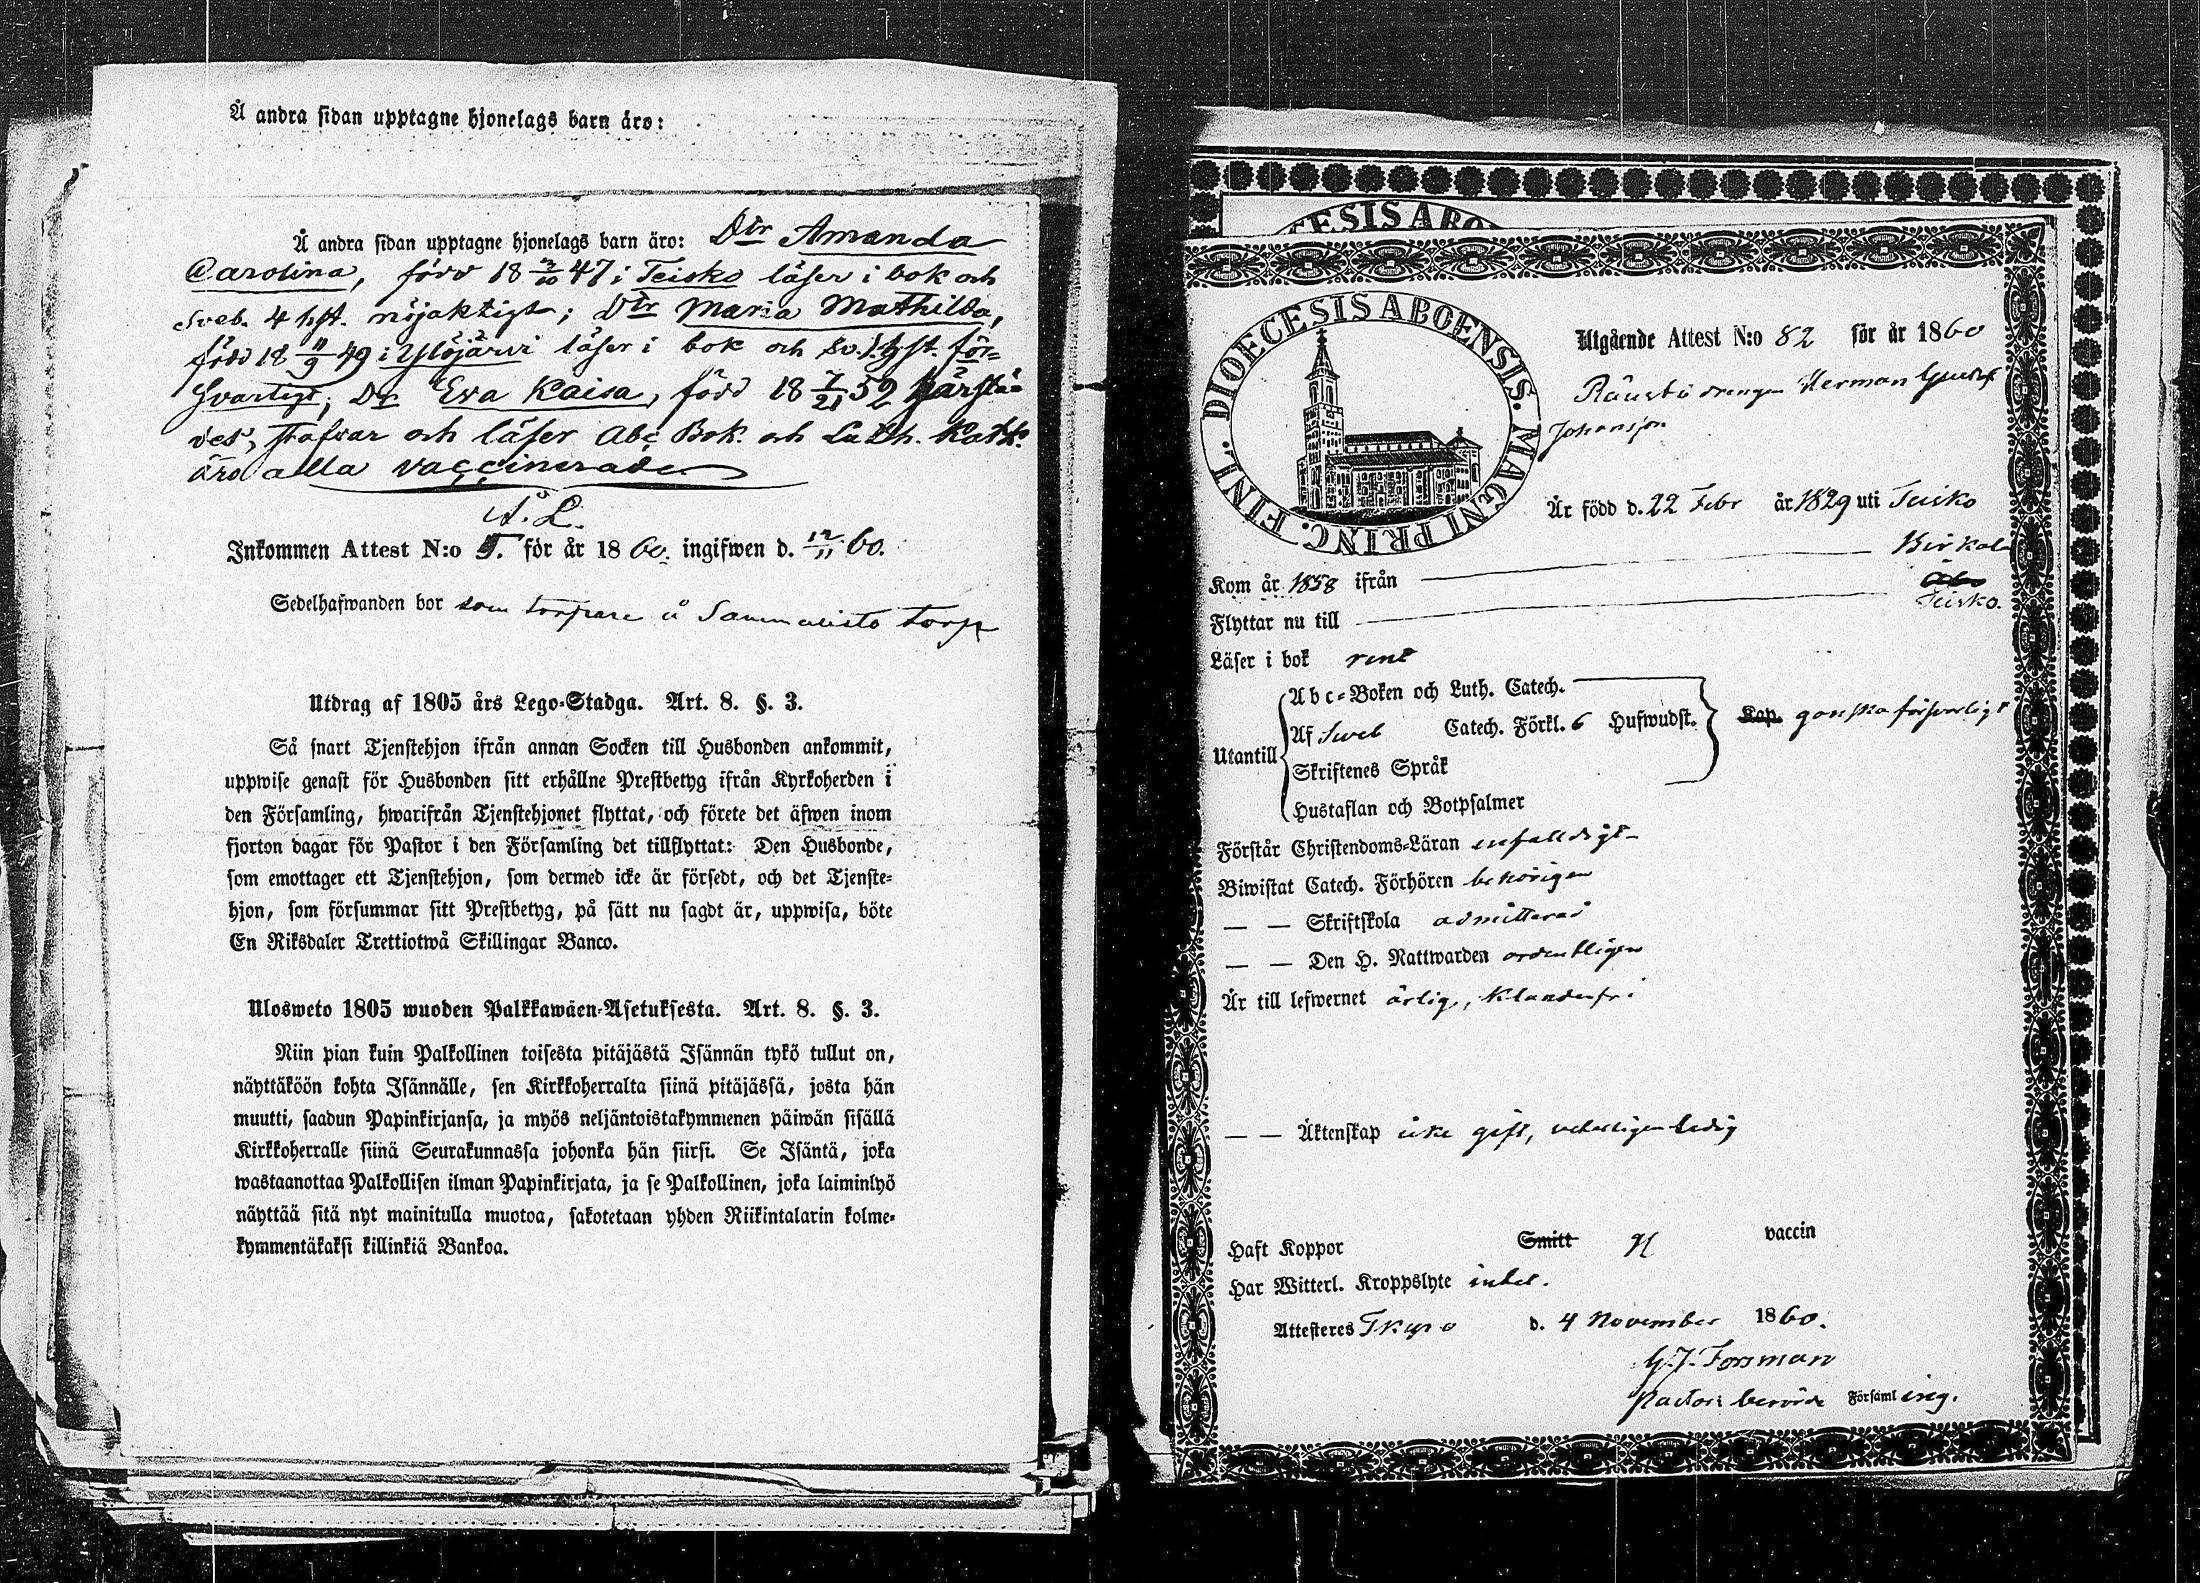 Å andra sidan upptagne hjonelags barn äro:
Å andra sidan upptagne hjonelags barn äro: Dtr Amanda
Carolina, född 18 47 i Teisko läser i bok och
Sveb. 4 hft. nöjaktigt; Dtr Maria Mathilda,
född 18 11/9 49 i Ylöjärvi läser i bok och Sv. hft. för=
svarligt; Dr Eva Kaisa, född 18 7/21 52
och läser Abc Bok. och Luth. Kat.
äro alla vaccinerade
A. L.
Inkommen Attest N:o 5. för år 1860. ingifwen d. 12/11 60.
Sedelhafwanden bor som torpare å torp
Utdrag af 1805 års Lego-Stadga. Art. 8. §. 3.
Så snart Tjenstehjon ifrån annan Socken till Husbonden ankommit,
uppwise genast för Husbonden sitt erhållne Prestbetyg ifrån Kyrkoherden i
den Församling, hwarifrån Tjenstehjonet flyttat, och förete det äfwen inom
fjorton dagar för Pastor i den Församling det tillflyttat: Den Husbonde,
som emottager ett Tjenstehjon, som dermed icke är försedt, och det Tjenste=
hjon, som försummar sitt Prestbetyg, på sätt nu sagdt är, uppwisa, böte
En Riksdaler Trettiotwå Skillingar Banco.
Ulosweto 1805 wuoden Palkkawäen-Asetuksesta. Art. 8. §. 3.
Niin pian kuin Palkollinen toisesta pitäjästä Isännän tykö tullut on,
näyttäköön kohta Isännälle, sen Kirkkoherralta siinä pitäjässä, josta hän
muutti, saadun Papinkirjansa, ja myös neljäntoistakymmenen päiwän sisällä
Kirkkoherralle siinä Seurakunnassa johonka hän siirsi. Se Isäntä, joka
wastaanottaa Palkollisen ilman Papinkirjata, ja se Palkollinen, joka laiminlyö
näyttää sitä nyt mainitulla muotoa, sakotetaan yhden Riikintalarin kolme=
kymmentäkaksi killinkiä Bankoa.
DIOECESIS ABOENSIS. MAGNI PRINC. FINL.
Utgående Attest N:o 82 för år 1860
drengen Herman Gustaf
Johansson
Är född d. 22 Febr år 1829 uti Teisko
Kom år 1858 ifrån Birkala
Flyttar nu till Teisko.
Läser i bok rent
Utantill
Abc=Boken och Luth. Catech.
Af Sveb Catech. Förkl. 6 Hufwudst. Kap. ganska försvarligt
Skriftenes Språk
Hustaflan och Botpsalmer
Förstår Christendoms=Läran enfalldigt
Biwistat Catech. Förhören behörigen
— — Skriftskola admitterad
— — Den H. Nattwarden ordentligen
Är till lefwernet ärlig, klanderfri
— — Äktenskap icke gift, ledig
Haft Koppor Smitt vaccin
Har Witterl. Kroppslyte intet.
Attesteres Tkyro d. 4 November 1860.
G. J. Forsman
Församl ing.